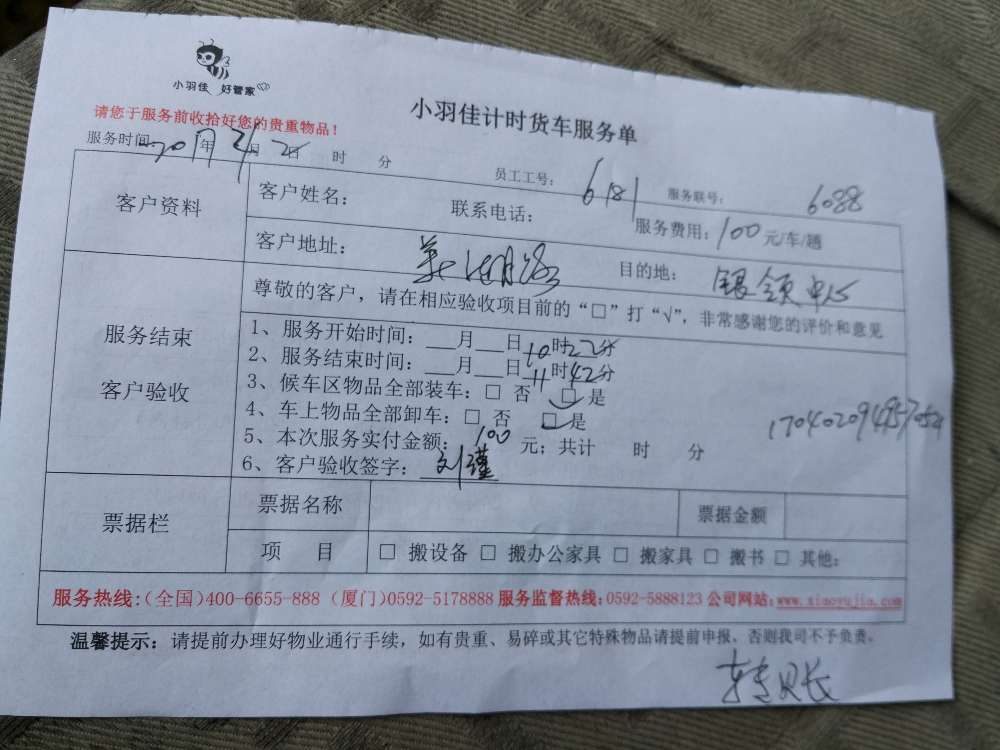 小羽佳 好管家
小羽佳计时货车服务单
请您于服务前收拾好您的贵重物品！
服务时间 年 月 日 时 分 员工工号：6181 服务联号：6088
客户资料
客户姓名： 联系电话： 服务费用：100元/车/趟
客户地址： 目的地：银领中心
服务结束
客户验收
尊敬的客户，请在相应验收项目前的“□”打“√”，非常感谢您的评价和意见
1、服务开始时间：___月___日10时22分
2、服务结束时间：___月___日11时42分
3、候车区物品全部装车：□ 否 □ 是
4、车上物品全部卸车：□ 否 □ 是
5、本次服务实付金额：100 元；共计 时 分
6、客户验收签字：刘瑾
票据栏
票据名称 票据金额
项 目 □ 搬设备 □ 搬办公家具 □ 搬家具 □ 搬书 □ 其他：
服务热线：（全国）400-6655-888（厦门）0592-5178888 服务监督热线：0592-5888123 公司网站：www.xiaoyujia.com
温馨提示：请提前办理好物业通行手续，如有贵重、易碎或其它特殊物品请提前申报，否则我司不予负责。